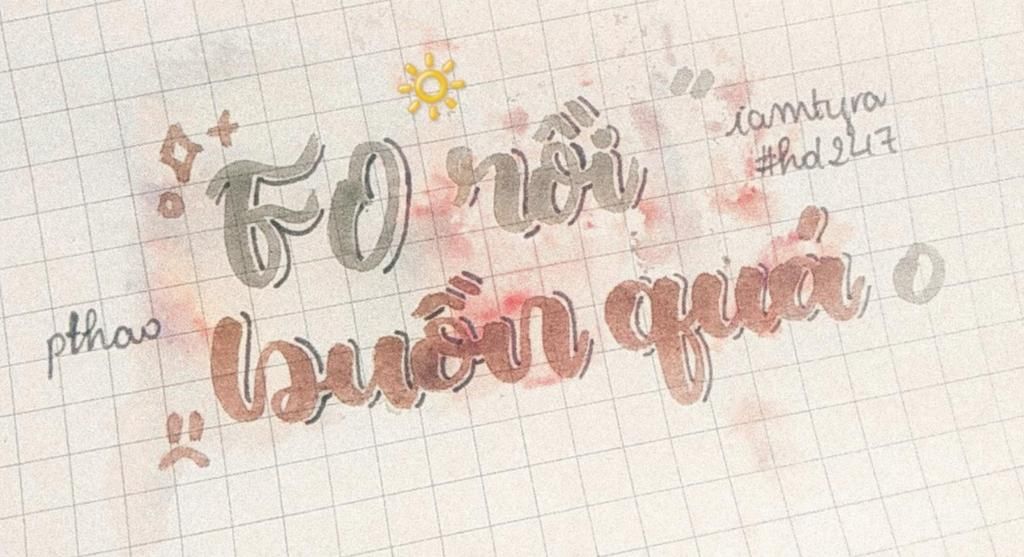 F0 rồi
iamtyra
#hd247
buồn quá
pthao